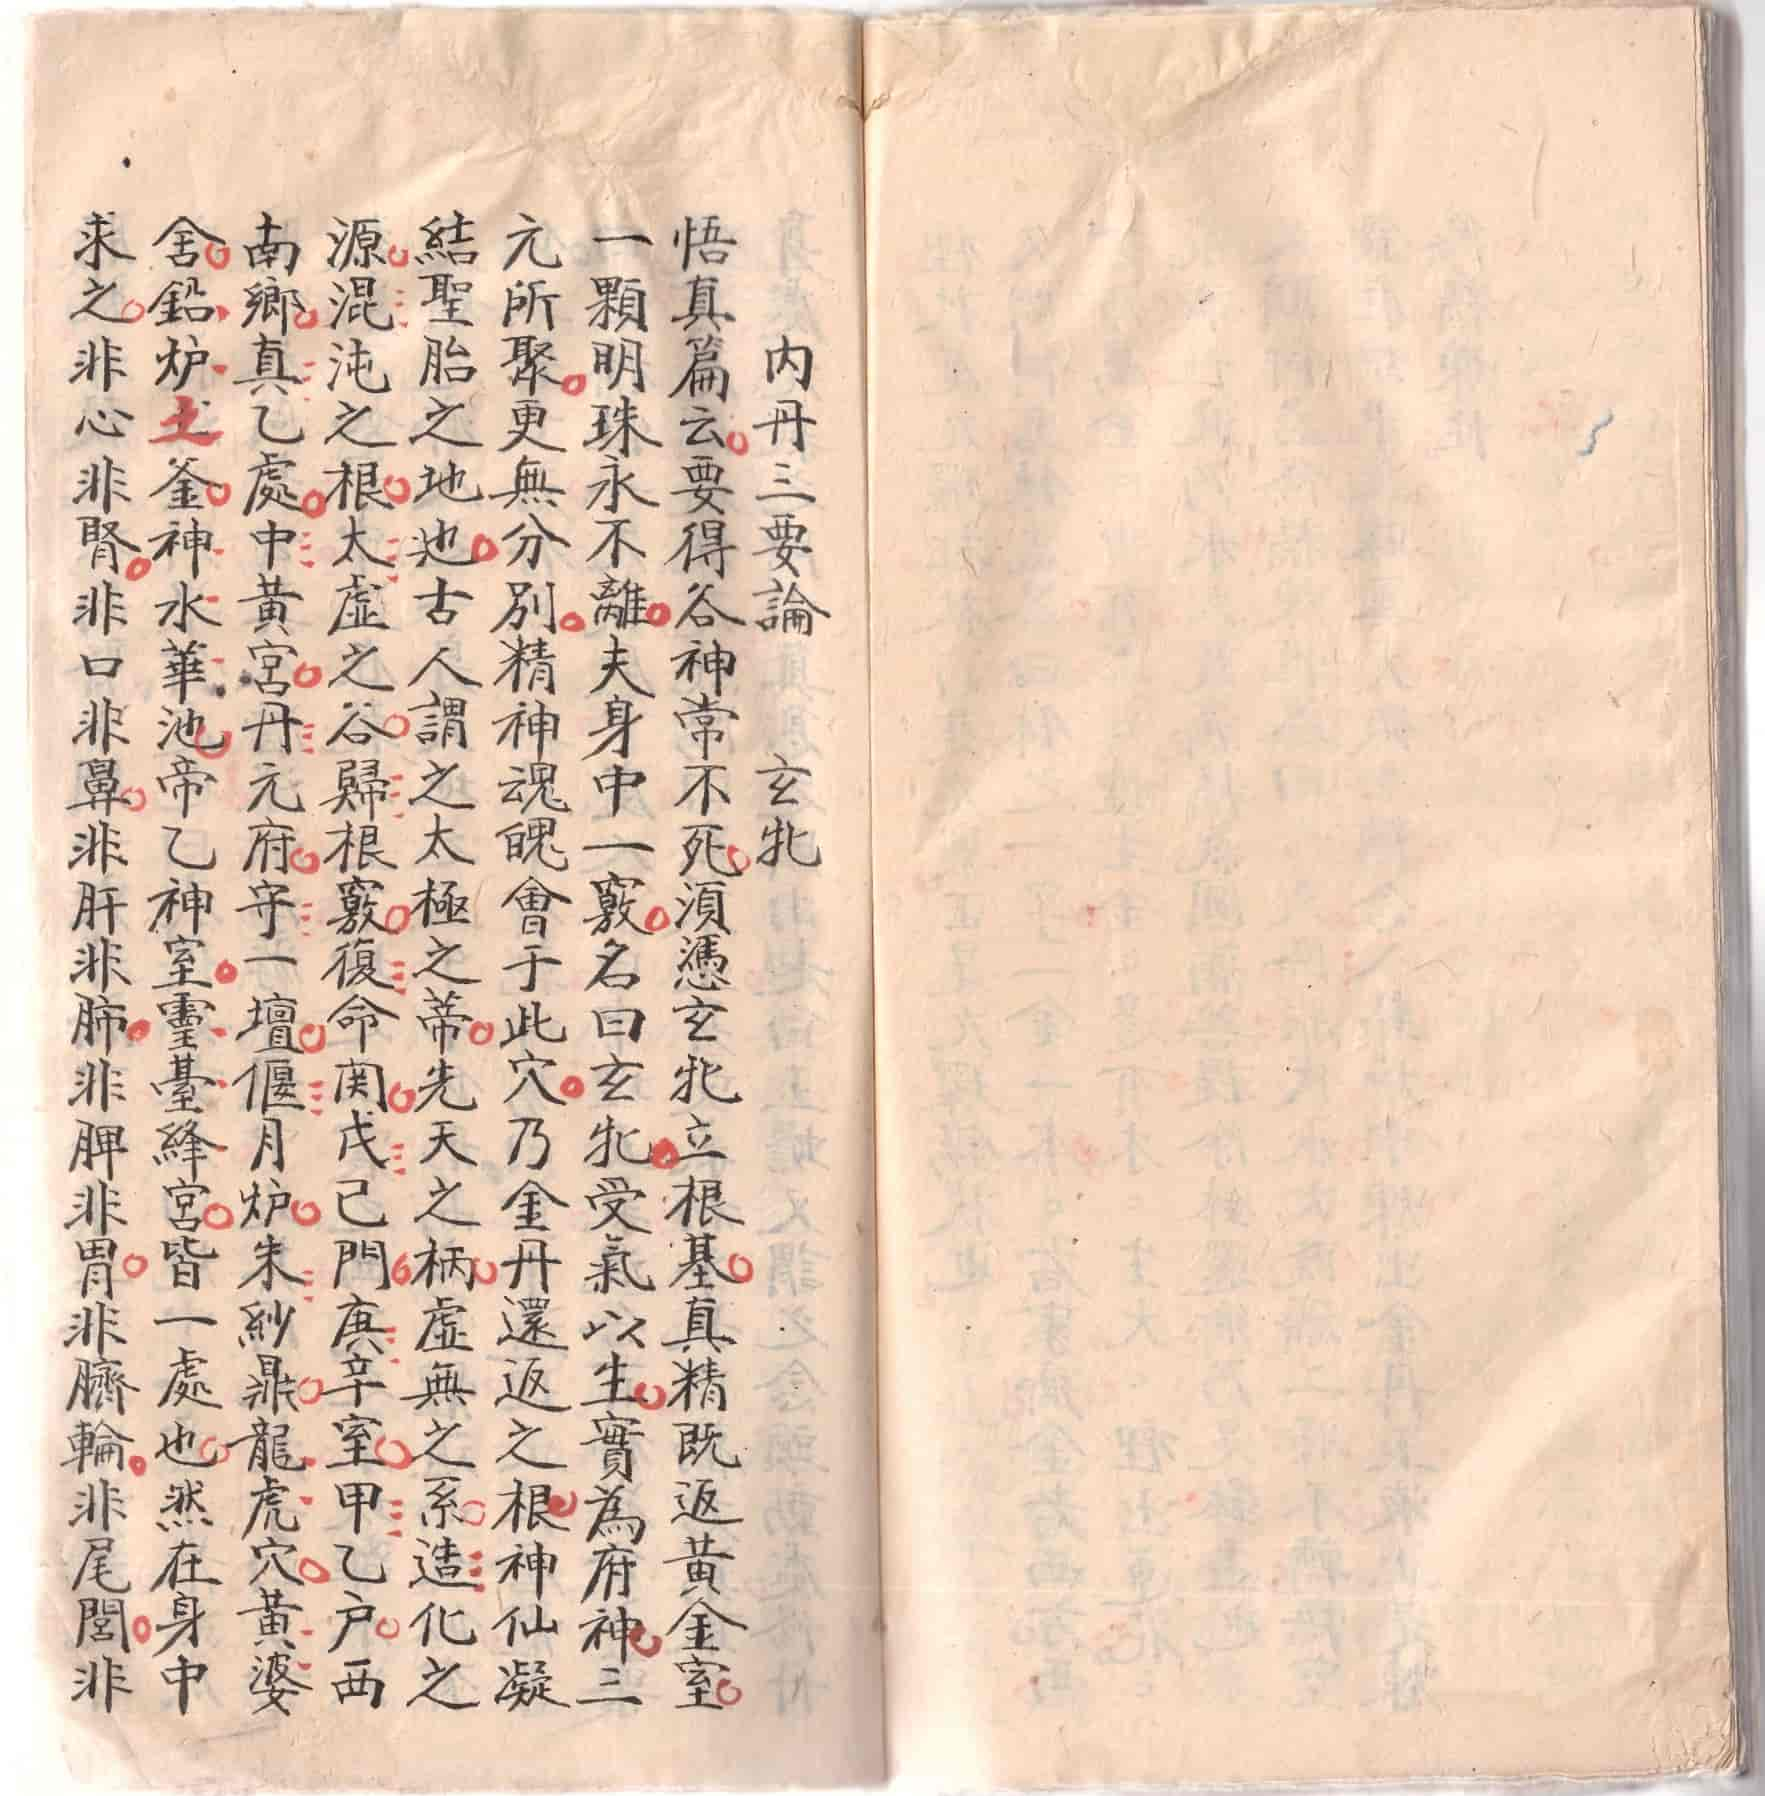 内丹三要論　玄牝
悟真篇云要得谷神常不死須憑玄牝立根基真精既返黃金室
一顆明珠永不離夫身中一竅名曰玄牝受氣以生實為府神三
元所聚更無分別精神魂魄會于此穴乃金丹還返之根神仙凝
結聖胎之地也古人謂之太極之蒂先天之柄虛無之系造化之
源混沌之根太虛之谷歸根竅復命関戊己門庚辛室甲乙户西
南鄉真乙處中黃宮丹元府守一壇偃月炉朱紗鼎龍虎穴黃婆
舍鉛炉土釜神水華池帝乙神室靈臺絳宮皆一處也然在身中
求之非心非腎非口非鼻非肝非肺非脾非胃非臍輪非尾閭非